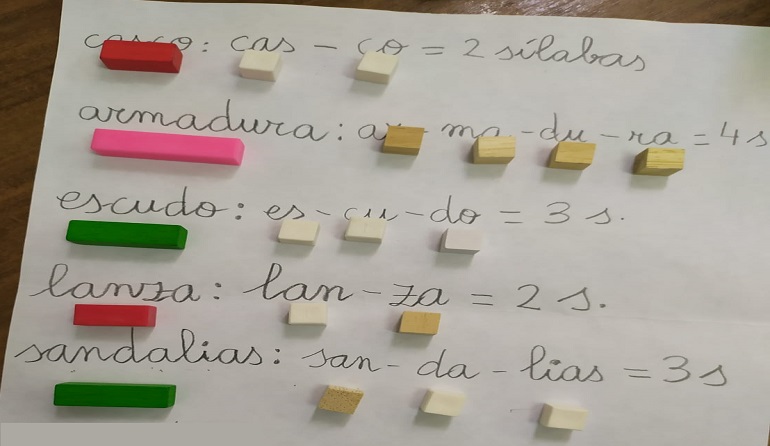 casco: cas - co = 2 sílabas
armadura: ar - ma - du - ra = 4 s
escudo: es - cu - do = 3 s.
lanza: lan - za = 2 s.
sandalias: san - da - lias = 3 s